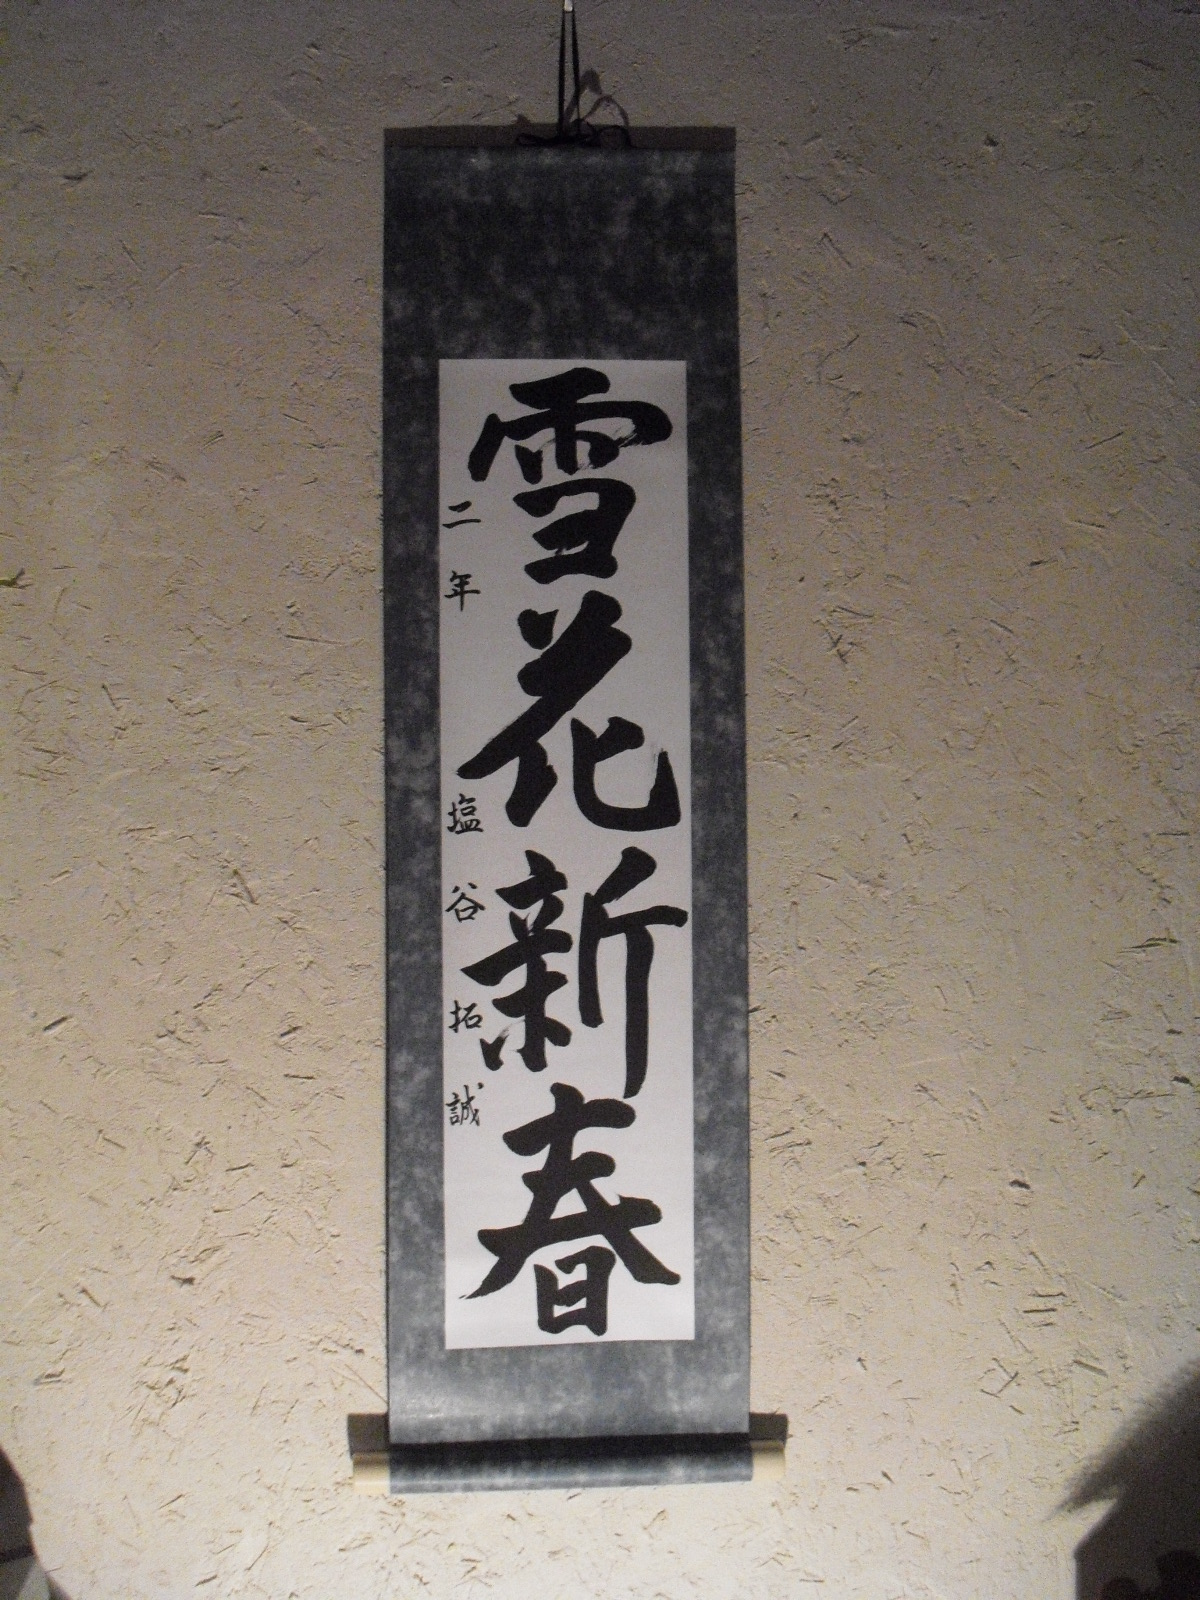 雪花新春
二年 塩谷拓誠